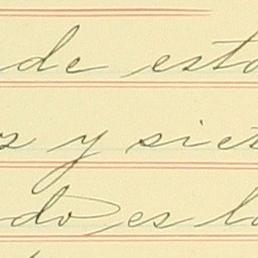 de esto
s y siet
do es lo